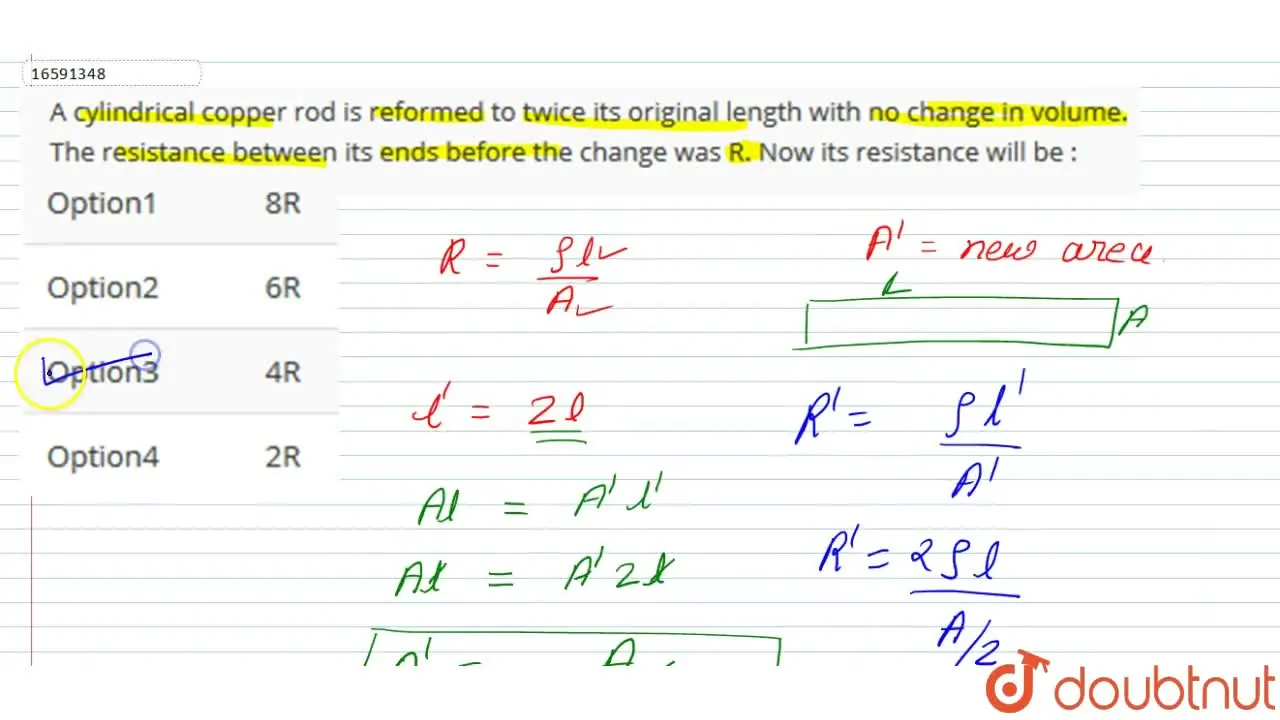 16591348
A cylindrical copper rod is reformed to twice its original length with no change in volume.
The resistance between its ends before the change was R. Now its resistance will be :
Option1 8R
Option2 6R
Option3 4R
Option4 2R
R = ρl / A
l' = 2l
Al = A' l'
Al = A' 2l
A' = new area
L
A
R' = ρl' / A'
R' = 2ρl / A/2
doubtnut